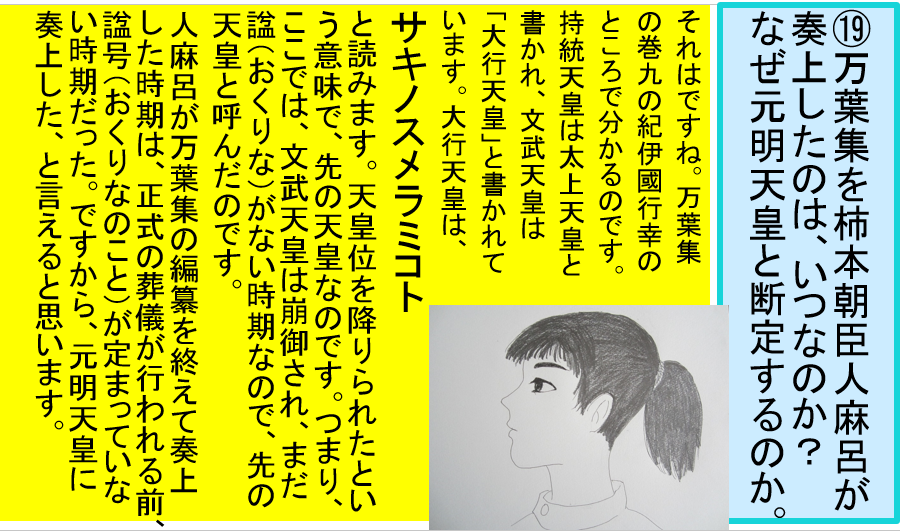 ⑲万葉集を柿本朝臣人麻呂が
奏上したのは、いつなのか？
なぜ元明天皇と断定するのか。
それはですね。万葉集
の巻九の紀伊國行幸の
ところで分かるのです。
持統天皇は太上天皇と
書かれ、文武天皇は
「大行天皇」と書かれて
います。大行天皇は、
サキノスメラミコト
と読みます。天皇位を降りられたとい
う意味で、先の天皇なのです。つまり、
ここでは、文武天皇は崩御され、まだ
諡（おくりな）がない時期なので、先の
天皇と呼んだのです。
人麻呂が万葉集の編纂を終えて奏上
した時期は、正式の葬儀が行われる前、
諡号（おくりなのこと）が定まっていな
い時期だった。ですから、元明天皇に
奏上した、と言えると思います。